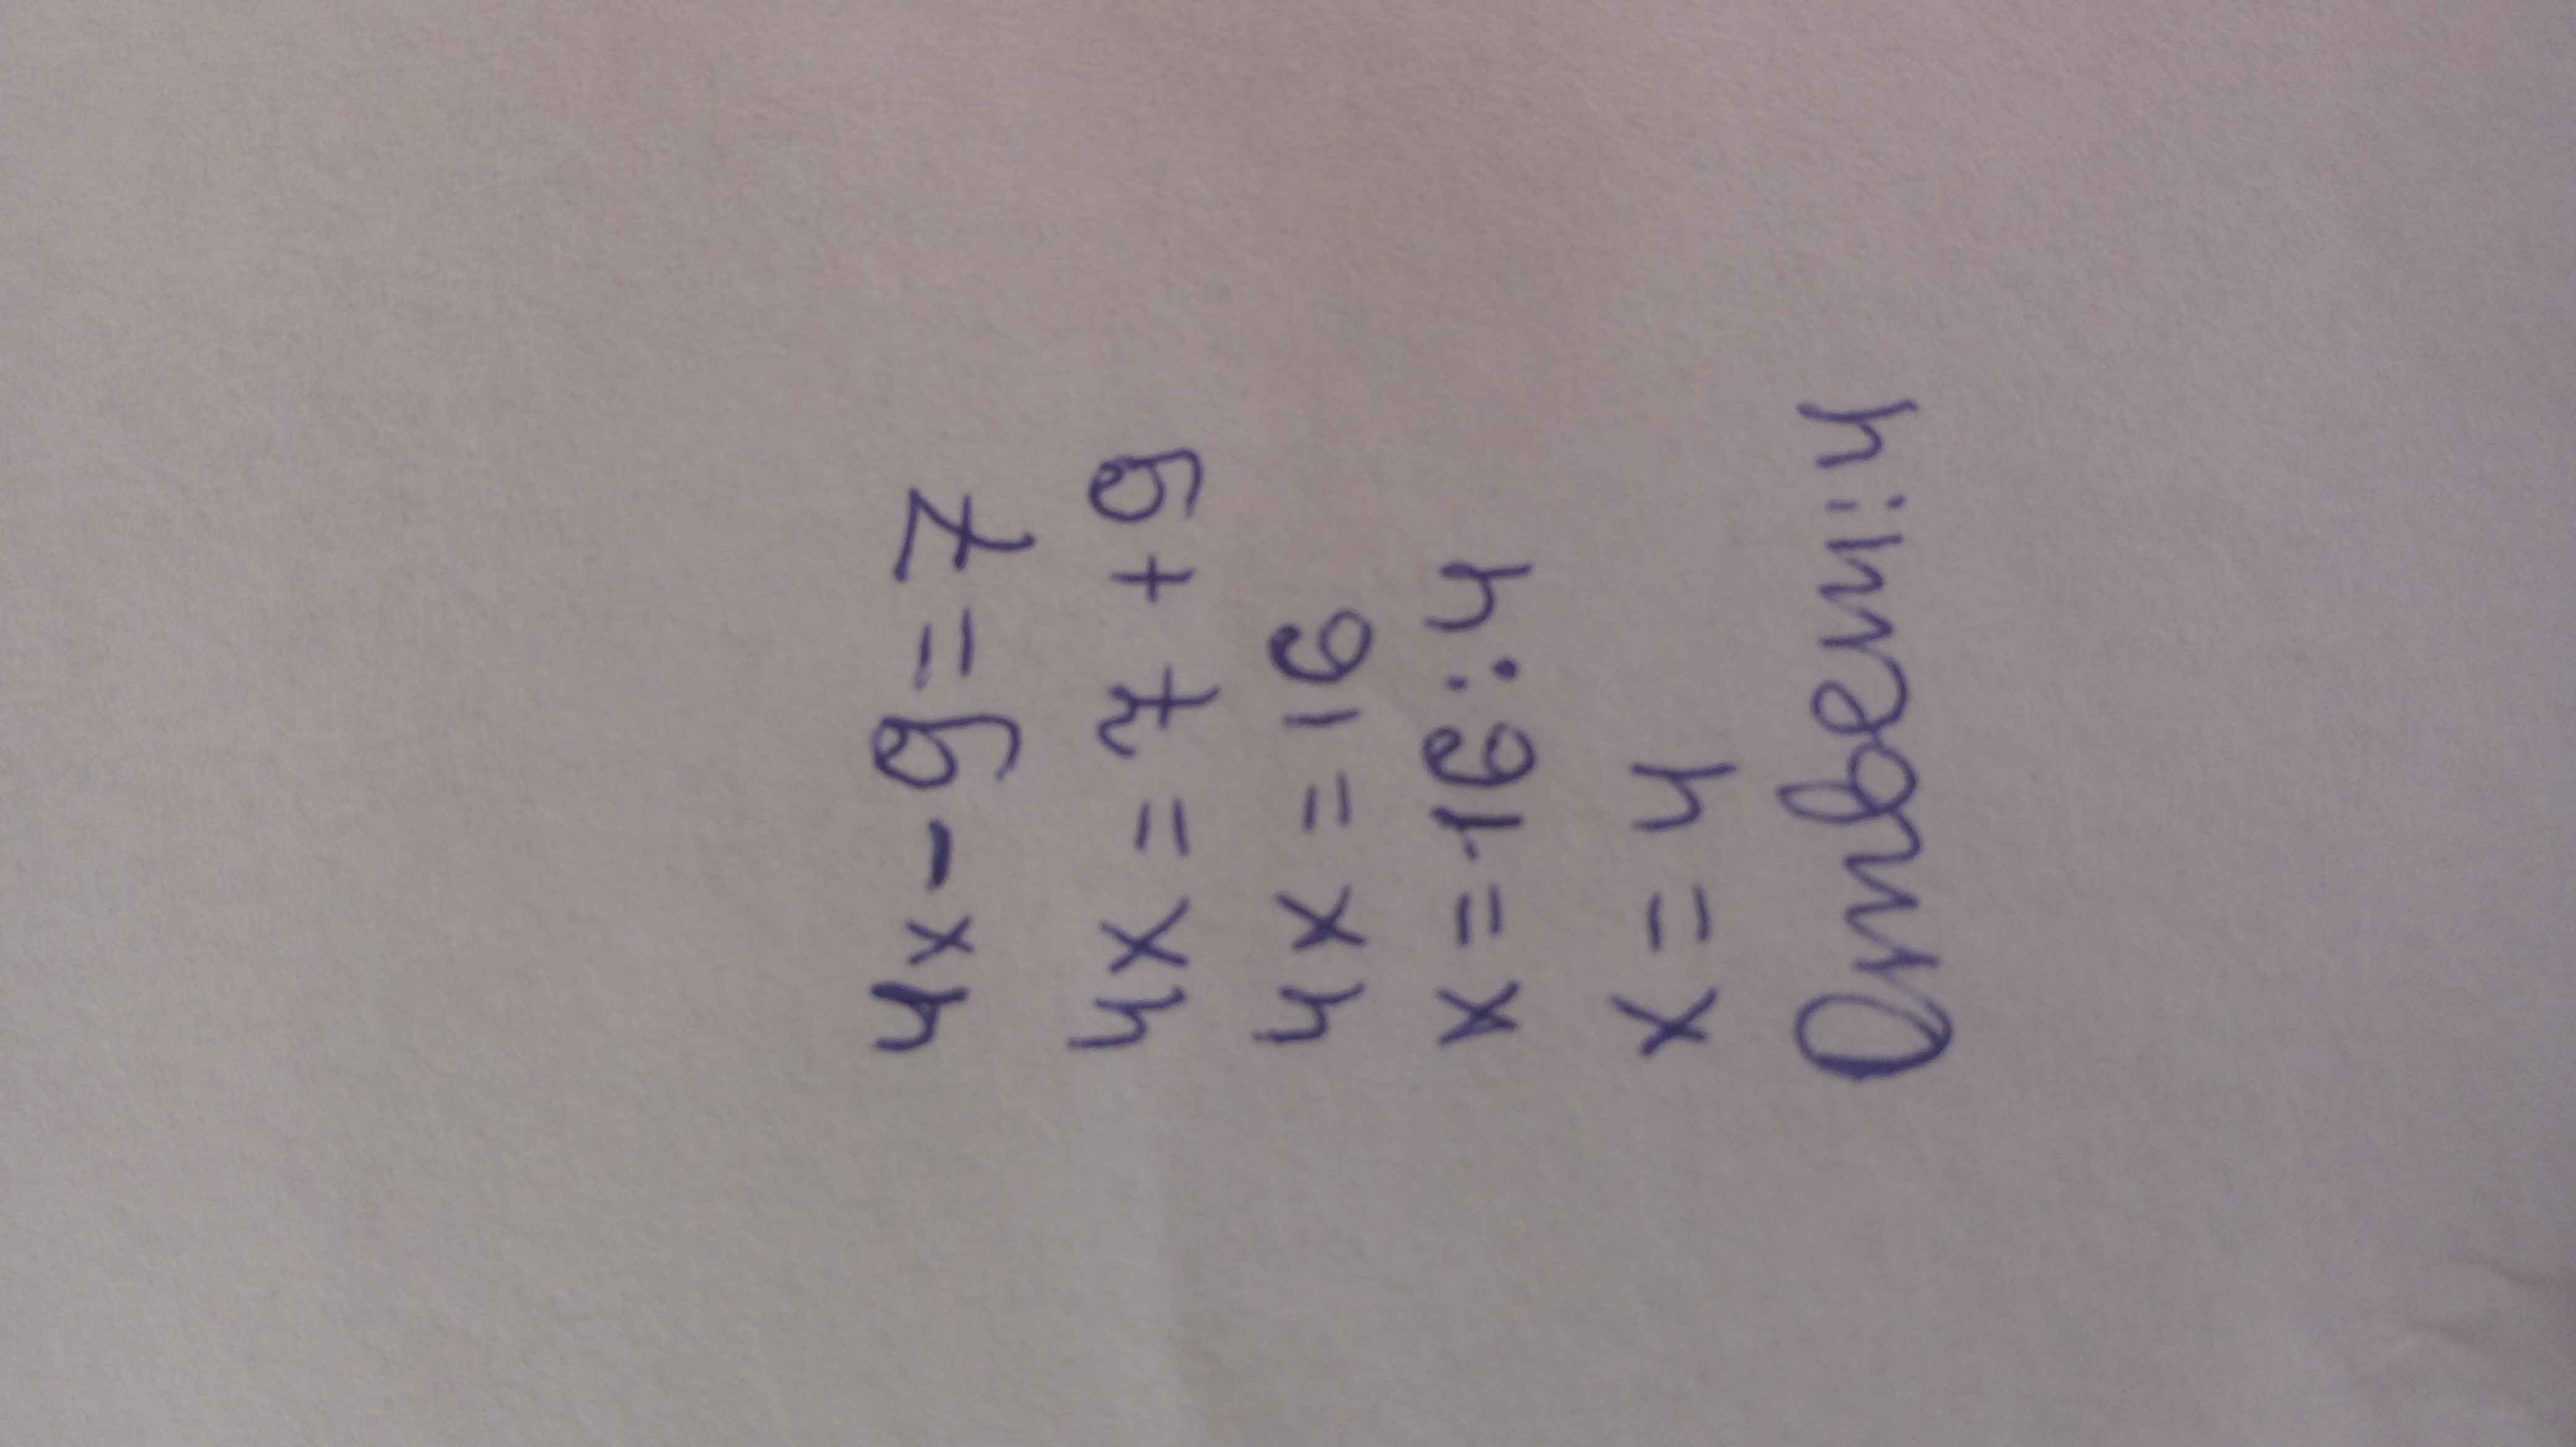 4x - 9 = 7
4x = 7 + 9
4x = 16
x = 16 : 4
x = 4
Ответ: 4